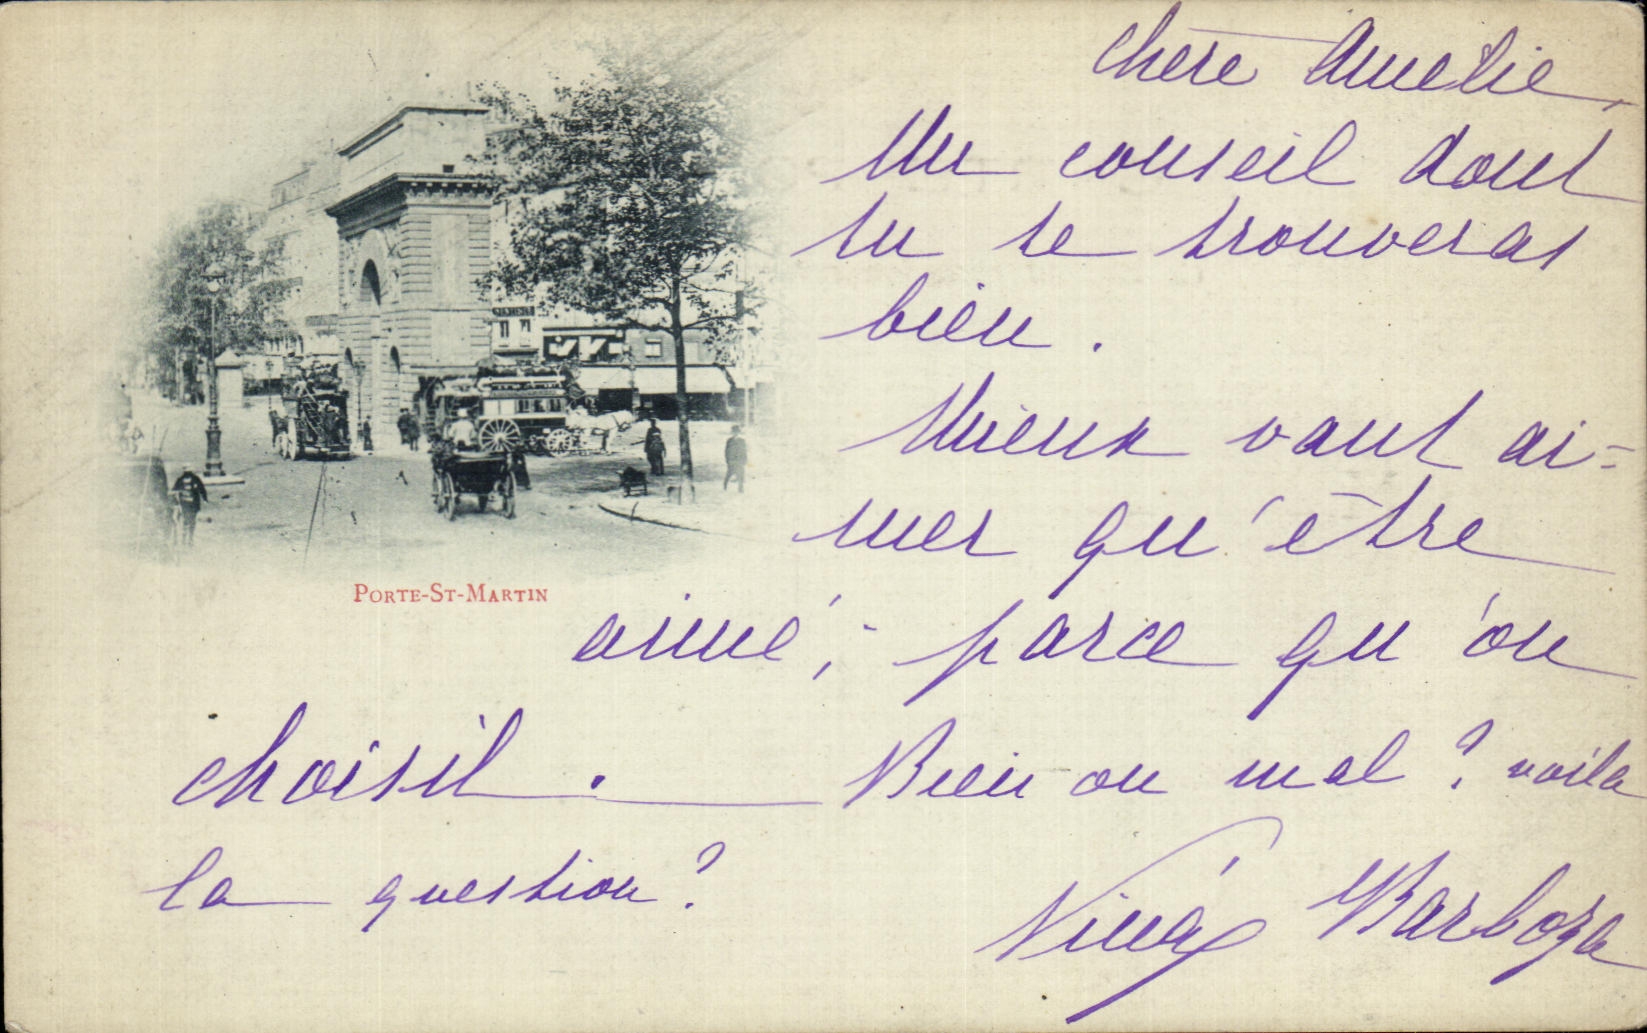 Chère Amelie,
Un conseil dont
tu te trouveras
bien.
Mieux vaut ai-
mer qu'être
PORTE-ST-MARTIN
aimé; parce qu'on
choisit. Bien ou mal? voila
la question?
Barboza